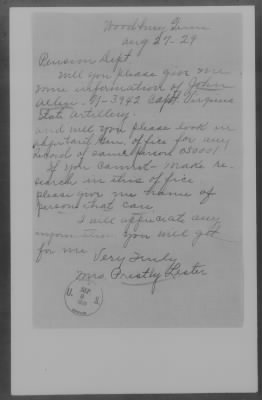 Woodbury Tenn
Aug 27-29
Pension Dept!
Will you please give me
some information of John
Allen. W- 3942 Capt. Virginia
State Artillery.
and will you please look in
Adjutant Gen. office for any
record of same person
If you cannot make re-
search in this office
please give me name of
person that can
I will appreciate any
information you will get
for me
Very Truly
Mrs. Priestly Lester
U. S.
SEP